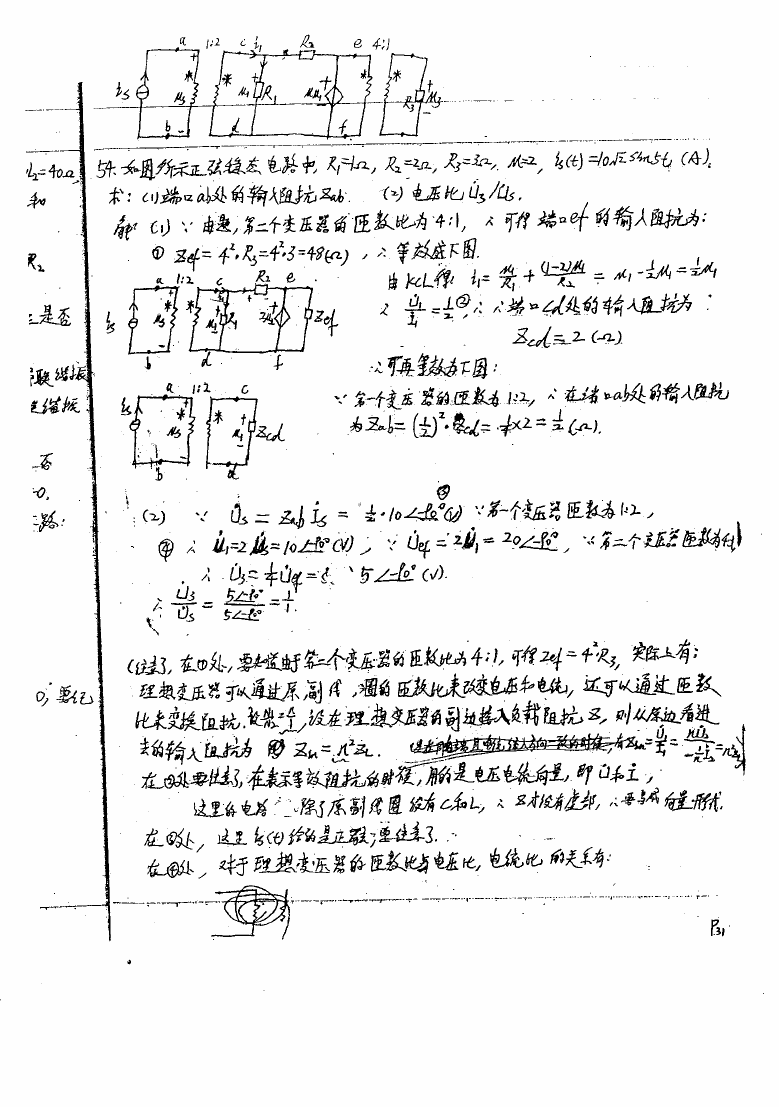 a 1:2 c i₁ R₂ e 4:1
is * + u₅ * + u₁ R₁ + μu₁ * * R₃ + u₃
b d f
54. 如图所示正弦稳态电路中, R₁=1Ω, R₂=2Ω, R₃=3Ω, μ=2, is(t)=10√2 sin5t, (A).
求: (1) 端口ab处的输入阻抗Zab. (2) 电压比 U̇₃/U̇s.
解 (1) ∵ 由题, 第二个变压器的匝数比为4:1, ∴ 可得 端口ef的输入阻抗为:
① Zef = 4²·R₃ = 4²·3 = 48(Ω), ∴ 等效成下图.
a 1:2 c R₂ e
由KCL得: i₁ = u₁/R₁ + (1-2)u₁/R₂ = u₁ - ½u₁ = ½u₁
is us u₁ R₁ 2u₁ Zef
b d f
∴ 端口cd处的输入阻抗为:
Zcd = 2 (Ω)
∴ 可再等效为下图:
a 1:2 c
is us * * u₁ Zcd
b d
∵ 第一个变压器的匝数为1:2, ∴ 在端口ab处的输入阻抗
为 Zab = (½)²·Zcd = ¼×2 = ½ (Ω).
(2) ∵ U̇s = Zab İs = ½·10∠-90°(V) ③ ∵ 第一个变压器匝数为1:2,
④ ∴ U̇₁=2U̇s=10∠-90°(V), ∵ U̇ef = 2U̇₁ = 20∠-90°, ∵ 第二个变压器匝数为4:1
∴ U̇₃ = ¼U̇ef = 5∠-90° (V).
∴ U̇₃/U̇s = 5∠-90°/5∠-90° = 1/1.
(注意了, 在①处, 要知道由于第二个变压器的匝数比为4:1, 可得Zef = 4²R₃, 实际上有:
理想变压器可以通过原、副线圈的匝数比来改变电压和电流, 还可以通过匝数
比来变换阻抗. 设在理想变压器的副边接入负载阻抗Z, 则从原边看进
去的输入阻抗为 Zin = n²ZL.
在②处要注意了, 在表示等效阻抗的时候, 用的是电压电流向量, 即U̇和İ,
这里的电路 除了原副线圈 没有C和L, ∴ Z才没有虚部, ∴ 要写成 向量形式.
在③处, 这里 is(t)给的是正弦; 要注意了.
在④处, 对于理想变压器的匝数比与电压比, 电流比 的关系有:
L₂=40Ω,
和
R₂
是否
联谐振
谐振
否
0,
路:
0, 要记
P31